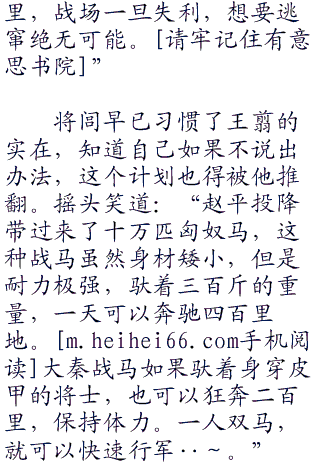 里，战场一旦失利，想要逃
窜绝无可能。[请牢记住有意
思书院]”
将闾早已习惯了王翦的
实在，知道自己如果不说出
办法，这个计划也得被他推
翻。摇头笑道：“赵平投降
带过来了十万匹匈奴马，这
种战马虽然身材矮小，但是
耐力极强，驮着三百斤的重
量，一天可以奔驰四百里
地。[m.heihei66.com手机阅
读]大秦战马如果驮着身穿皮
甲的将士，也可以狂奔二百
里，保持体力。一人双马，
就可以快速行军··~。”